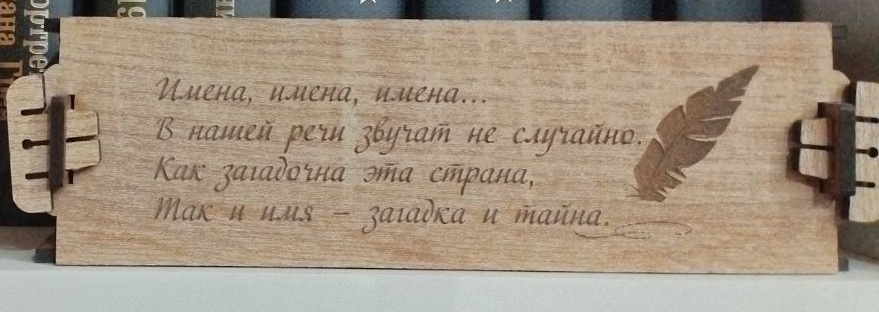 Имена, имена, имена...
В нашей речи звучат не случайно.
Как загадочна эта страна,
Так и имя – загадка и тайна.